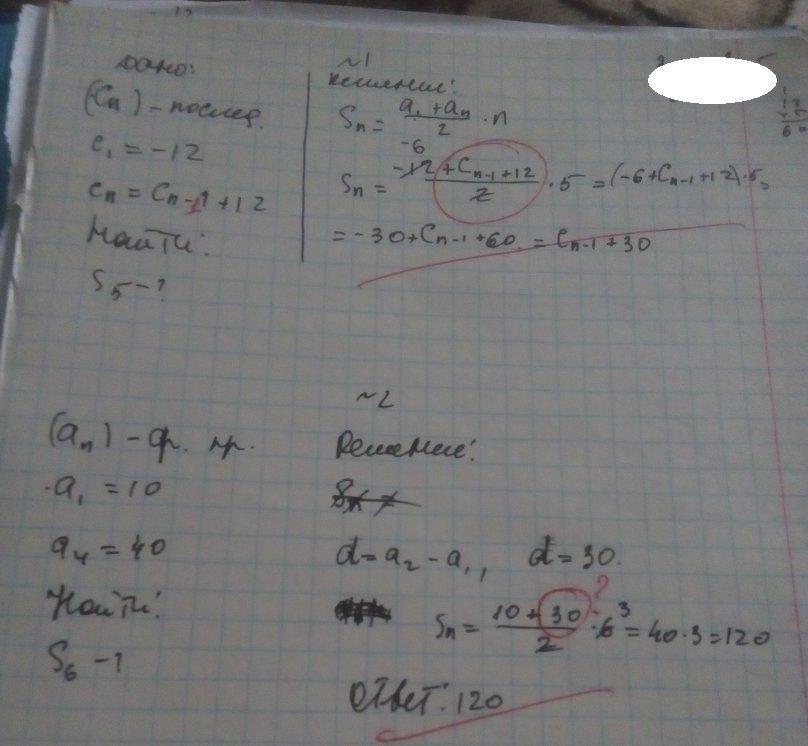 №1
Дано:
(Cn) - послед.
c₁ = -12
cn = Cn-1 + 12
Найти:
S₅ - ?
Решение:
Sn = (a₁ + an)/2 · n
-6
Sn = (-12 + Cn-1 + 12)/2 · 5 = (-6 + Cn-1 + 12) · 5 =
= -30 + Cn-1 + 60 = Cn-1 + 30
№2
(an) - ар. пр.
a₁ = 10
a₄ = 40
Найти:
S₆ - ?
Решение:
d = a₂ - a₁, d = 30.
?
Sn = (10 + 30)/2 · 6³ = 40 · 3 = 120
Ответ: 120